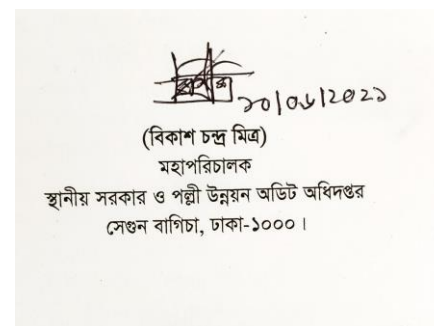 ২০/০৬/২০২১
(বিকাশ চন্দ্র মিত্র)
মহাপরিচালক
স্থানীয় সরকার ও পল্লী উন্নয়ন অডিট অধিদপ্তর
সেগুন বাগিচা, ঢাকা-১০০০ ।